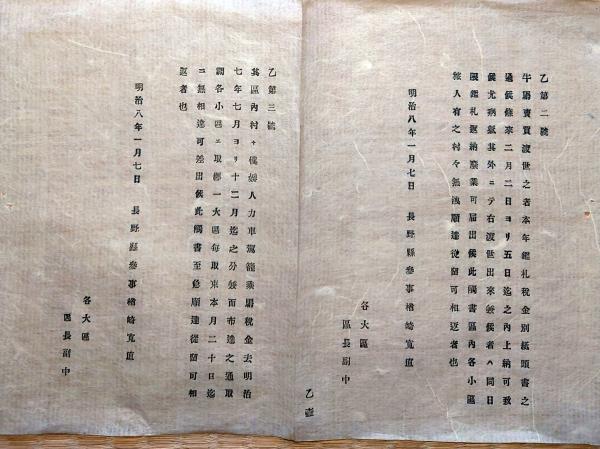 乙第二號
牛馬賣買渡世之者本年鑑札稅金別紙頭書之
通候條來二月二日ヨリ五日迄之內上納可致
候尤病氣其外ニテ右渡世出來兼候者ハ同日
限鑑札返納廢業可届出候此觸書區內各小區
并人有之村々無洩順達從留可相返者也
明治八年一月七日 長野縣參事楢崎寬直
各大區
區長副中
乙壹
乙第三號
其區內村々僕婢人力車駕籠乘馬稅金去明治
七年七月ヨリ十二月迄之分兼而布達之通取
調各小區ニ取纏一大區每取束本月二十日迄
ニ無相違可差出候此觸書至急順達從留可相
返者也
明治八年一月七日 長野縣參事楢崎寬直
各大區
區長副中